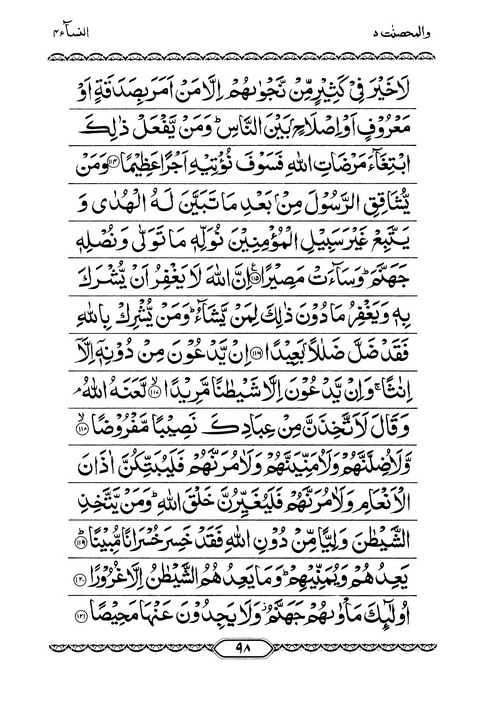 والمحصنت ٥ النسآء ٤
لَا خَيْرَ فِيْ كَثِيْرٍ مِّنْ نَّجْوٰىهُمْ اِلَّا مَنْ اَمَرَ بِصَدَقَةٍ اَوْ
مَعْرُوْفٍ اَوْ اِصْلَاحٍۭ بَيْنَ النَّاسِ ؕ وَمَنْ يَّفْعَلْ ذٰلِكَ
ابْتِغَآءَ مَرْضَاتِ اللّٰهِ فَسَوْفَ نُؤْتِيْهِ اَجْرًا عَظِيْمًا ۝۱۱۴ وَمَنْ
يُّشَاقِقِ الرَّسُوْلَ مِنْۢ بَعْدِ مَا تَبَيَّنَ لَهُ الْهُدٰى وَ
يَتَّبِعْ غَيْرَ سَبِيْلِ الْمُؤْمِنِيْنَ نُوَلِّهٖ مَا تَوَلّٰى وَنُصْلِهٖ
جَهَنَّمَ ؕ وَسَآءَتْ مَصِيْرًا ۝۱۱۵ اِنَّ اللّٰهَ لَا يَغْفِرُ اَنْ يُّشْرَكَ
بِهٖ وَيَغْفِرُ مَا دُوْنَ ذٰلِكَ لِمَنْ يَّشَآءُ ؕ وَمَنْ يُّشْرِكْ بِاللّٰهِ
فَقَدْ ضَلَّ ضَلٰلًاۢ بَعِيْدًا ۝۱۱۶ اِنْ يَّدْعُوْنَ مِنْ دُوْنِهٖۤ اِلَّاۤ
اِنٰثًا ۚ وَاِنْ يَّدْعُوْنَ اِلَّا شَيْطٰنًا مَّرِيْدًا ۝۱۱۷ۙ لَّعَنَهُ اللّٰهُ ۘ
وَقَالَ لَاَتَّخِذَنَّ مِنْ عِبَادِكَ نَصِيْبًا مَّفْرُوْضًا ۝۱۱۸ۙ
وَّلَاُضِلَّنَّهُمْ وَلَاُمَنِّيَنَّهُمْ وَلَاٰمُرَنَّهُمْ فَلَيُبَتِّكُنَّ اٰذَانَ
الْاَنْعَامِ وَلَاٰمُرَنَّهُمْ فَلَيُغَيِّرُنَّ خَلْقَ اللّٰهِ ؕ وَمَنْ يَّتَّخِذِ
الشَّيْطٰنَ وَلِيًّا مِّنْ دُوْنِ اللّٰهِ فَقَدْ خَسِرَ خُسْرَانًا مُّبِيْنًا ۝۱۱۹ؕ
يَعِدُهُمْ وَيُمَنِّيْهِمْ ؕ وَمَا يَعِدُهُمُ الشَّيْطٰنُ اِلَّا غُرُوْرًا ۝۱۲۰
اُولٰٓئِكَ مَاْوٰىهُمْ جَهَنَّمُ ؗ وَلَا يَجِدُوْنَ عَنْهَا مَحِيْصًا ۝۱۲۱
۹۸